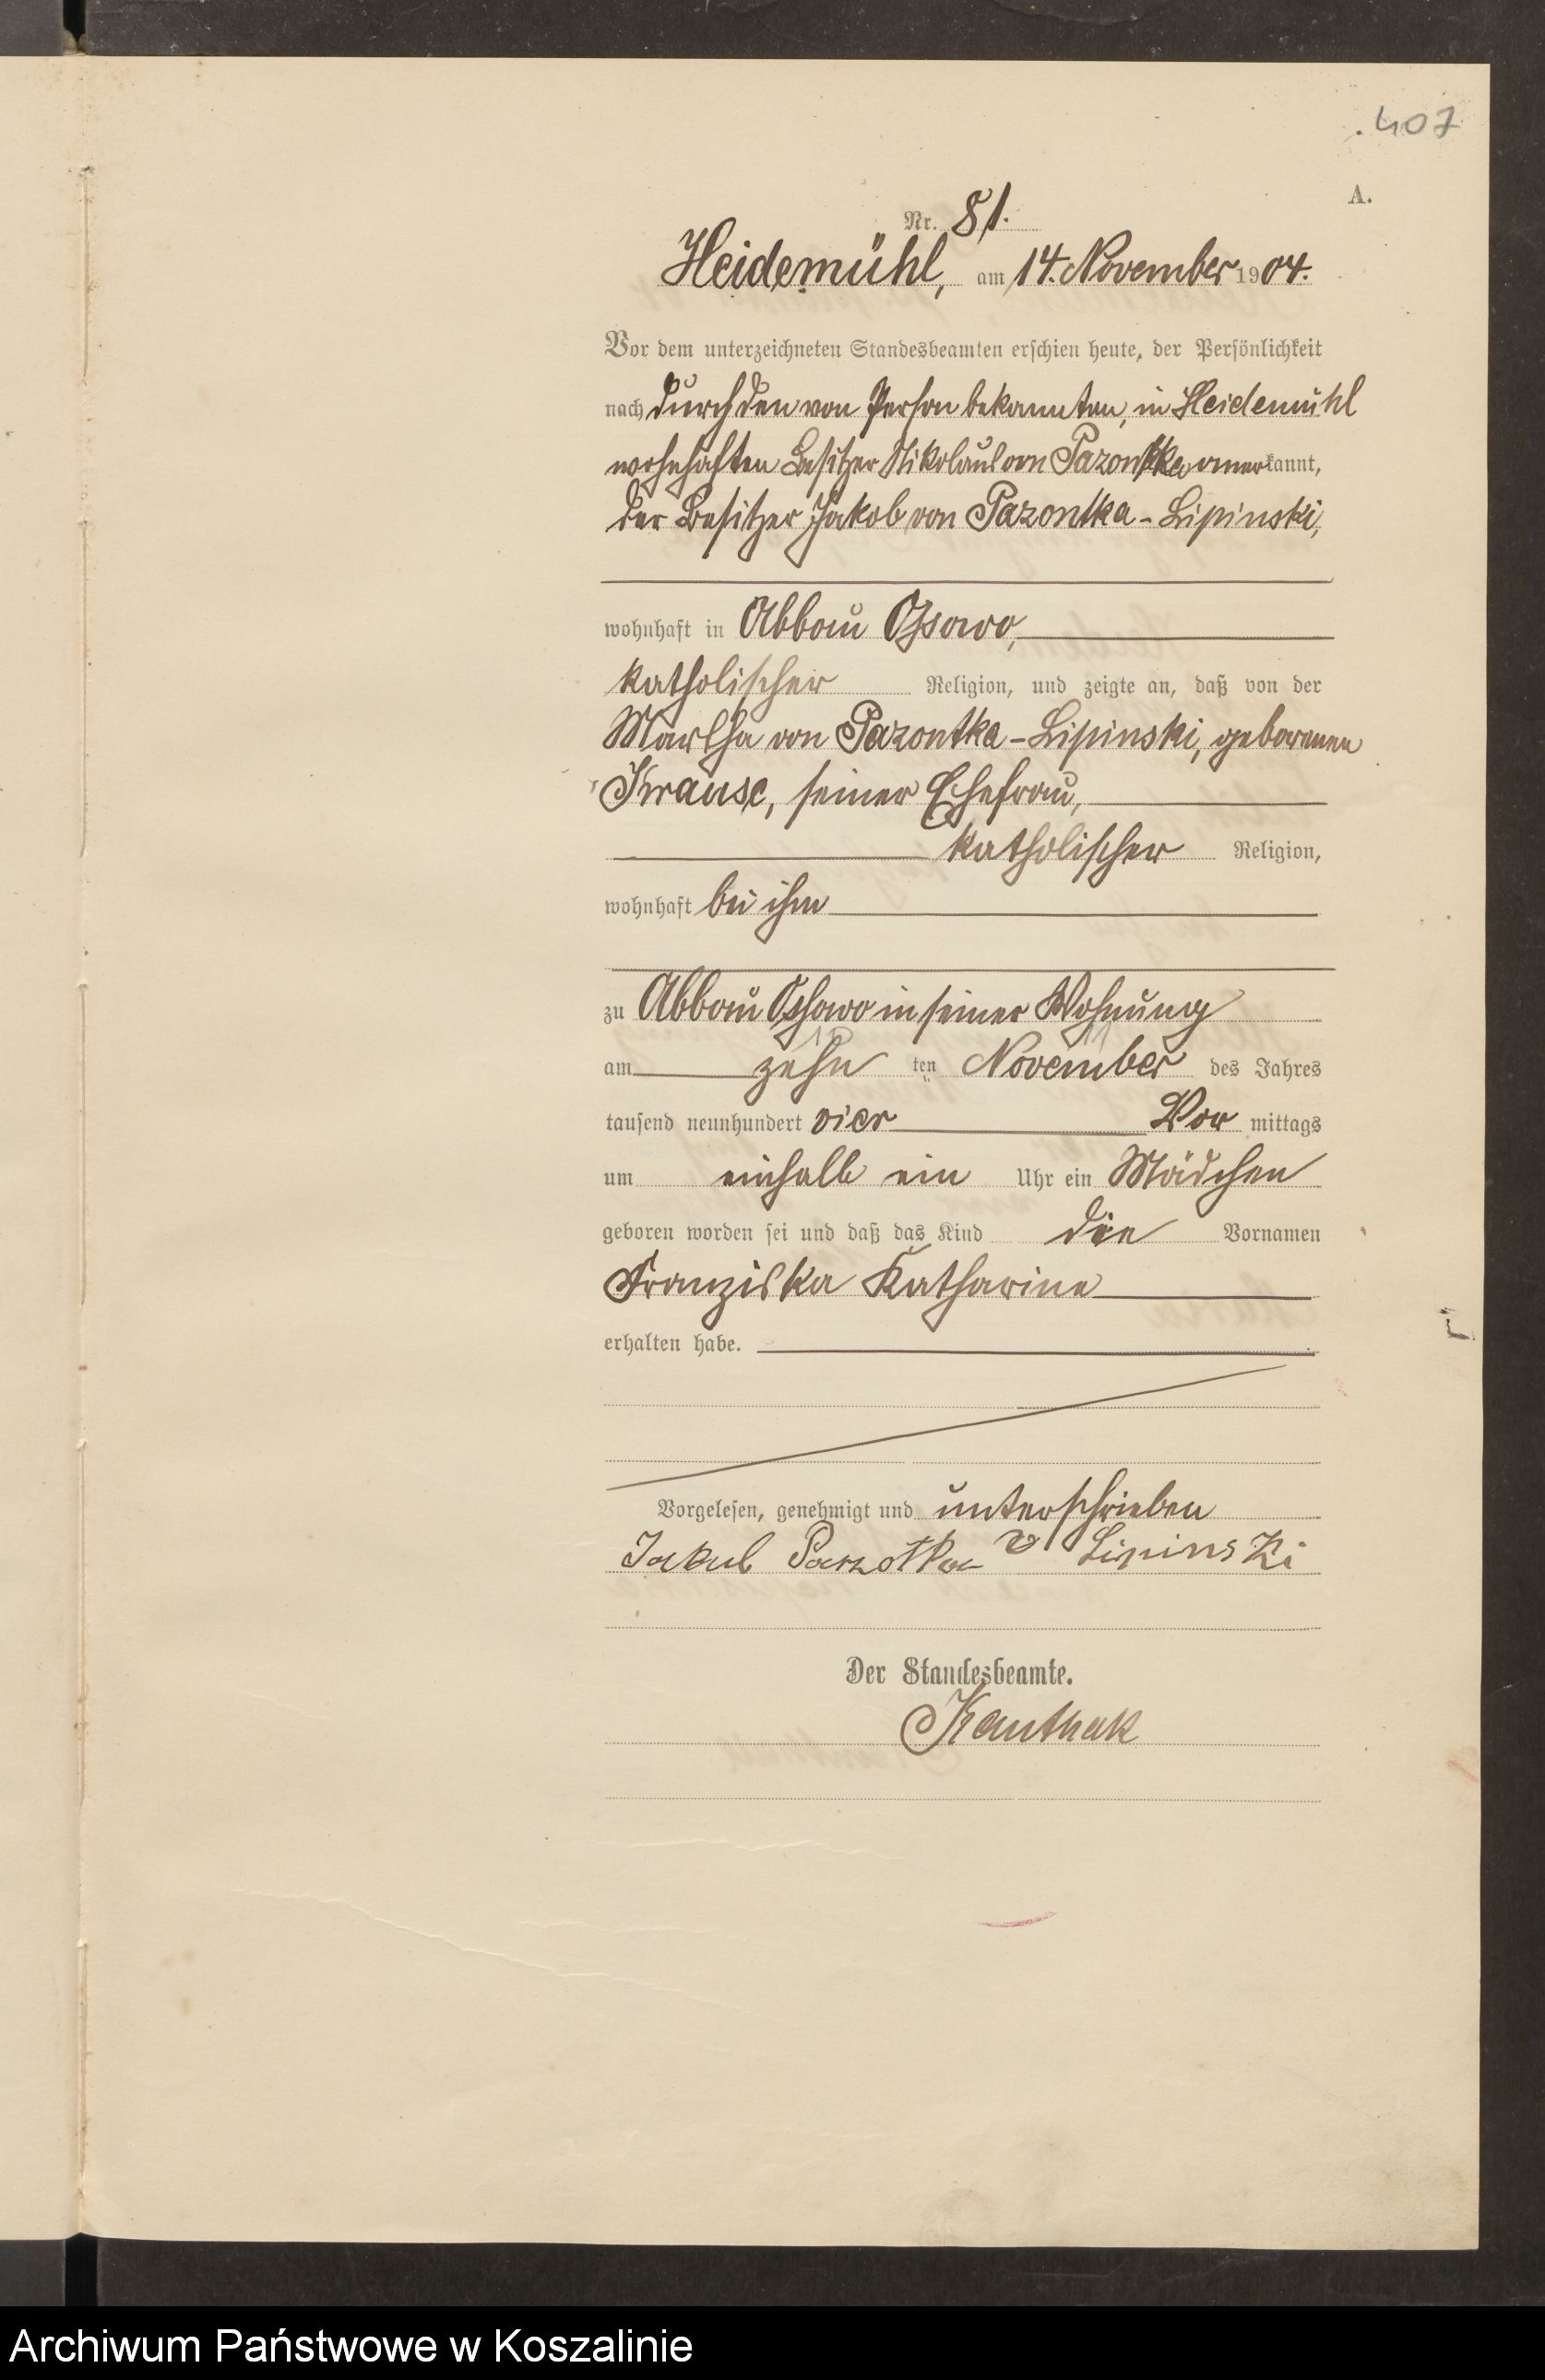 .407
A.
Nr. 81.
Heidemühl, am 14. November 1904.
Vor dem unterzeichneten Standesbeamten erschien heute, der Persönlichkeit
nach durch den von Person bekannten, in Heidemühl
wohnhaften Besitzer Nikolaus von Pazontka anerkannt,
der Besitzer Jakob von Pazontka-Lipinski,
wohnhaft in Abbau Ossowo,
katholischer Religion, und zeigte an, daß von der
Martha von Pazontka-Lipinski, geborenen
Krause, seiner Ehefrau,
katholischer Religion,
wohnhaft bei ihm
zu Abbau Ossowo in seiner Wohnung
am zehn ten November des Jahres
tausend neunhundert vier Vor mittags
um einhalb ein Uhr ein Mädchen
geboren worden sei und daß das Kind die Vornamen
Franziska Katharine
erhalten habe.
Vorgelesen, genehmigt und unterschrieben
Jakub Pazotka v Lipinski
Der Standesbeamte.
Kanthak
Archiwum Państwowe w Koszalinie